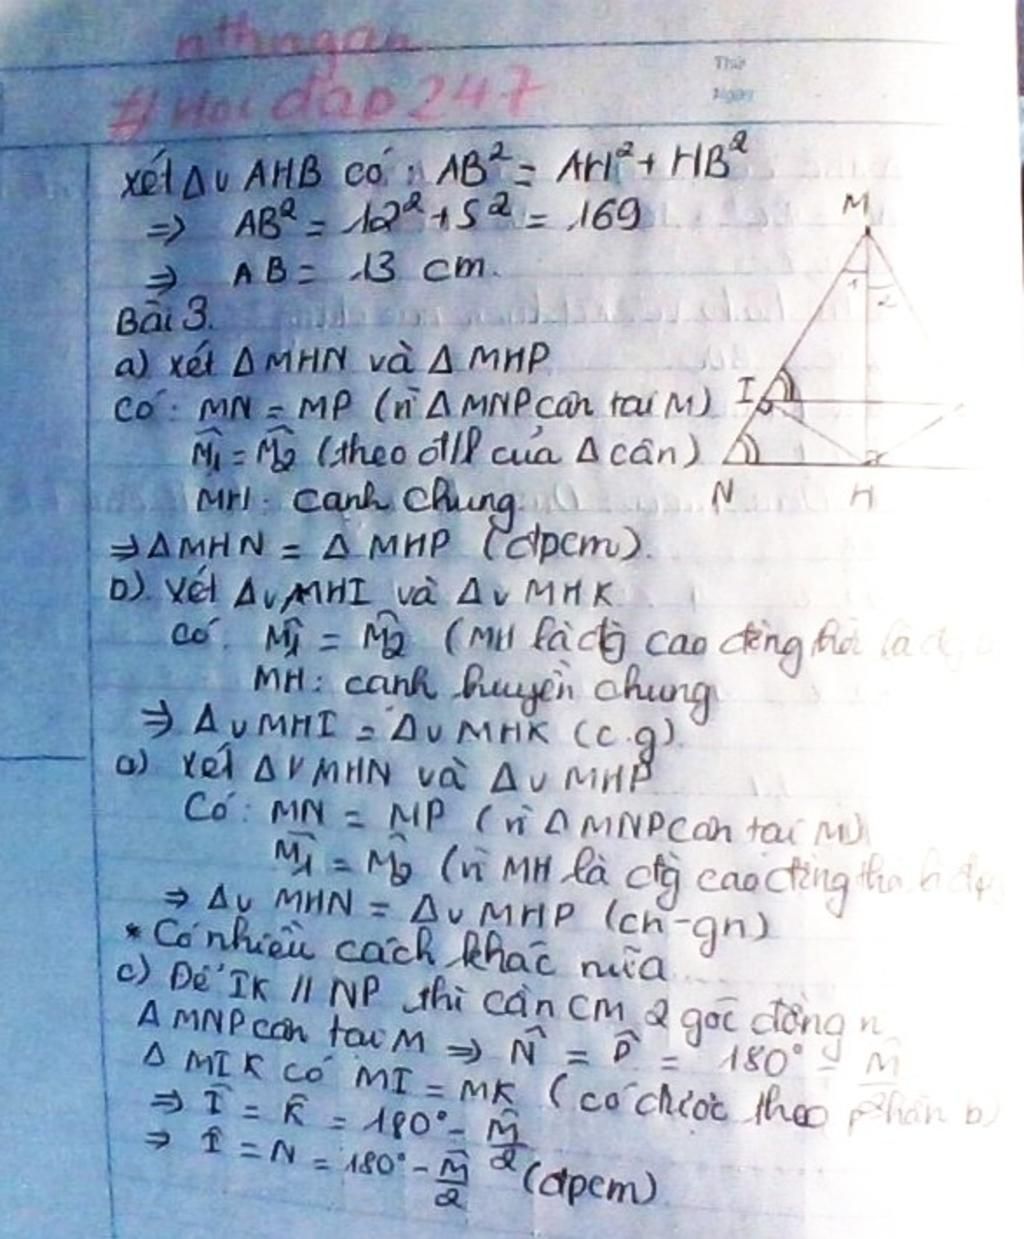 nthngan
#Hoidap247
Thứ
Ngày
xét Δv AHB có: AB² = AH² + HB²
⇒ AB² = 12² + 5² = 169
⇒ AB = 13 cm.
Bài 3.
a) xét Δ MHN và Δ MHP
có: MN = MP (vì Δ MNP cân tại M)
M̂₁ = M̂₂ (theo đ/l của Δ cân)
MH: cạnh chung
⇒ Δ MHN = Δ MHP (đpcm).
b) xét Δv MHI và Δv MHK
có: M̂₁ = M̂₂ (MH là đg cao đồng thời là đg
MH: cạnh huyền chung
⇒ Δv MHI = Δv MHK (c.g).
a) xét Δv MHN và Δv MHP
Có: MN = MP (vì Δ MNP cân tại M)
M̂₁ = M̂₂ (vì MH là đg cao đồng
⇒ Δv MHN = Δv MHP (ch-gn)
* Có nhiều cách khác nữa
c) Để IK // NP thì cần CM 2 góc đồng
Δ MNP cân tại M ⇒ N̂ = P̂ = 180° - M̂
Δ MIK có MI = MK (có được theo phần b)
⇒ Î = K̂ = 180° - M̂/2
⇒ Î = N = 180° - M̂/2 (đpcm)
M
1
2
I
N
H